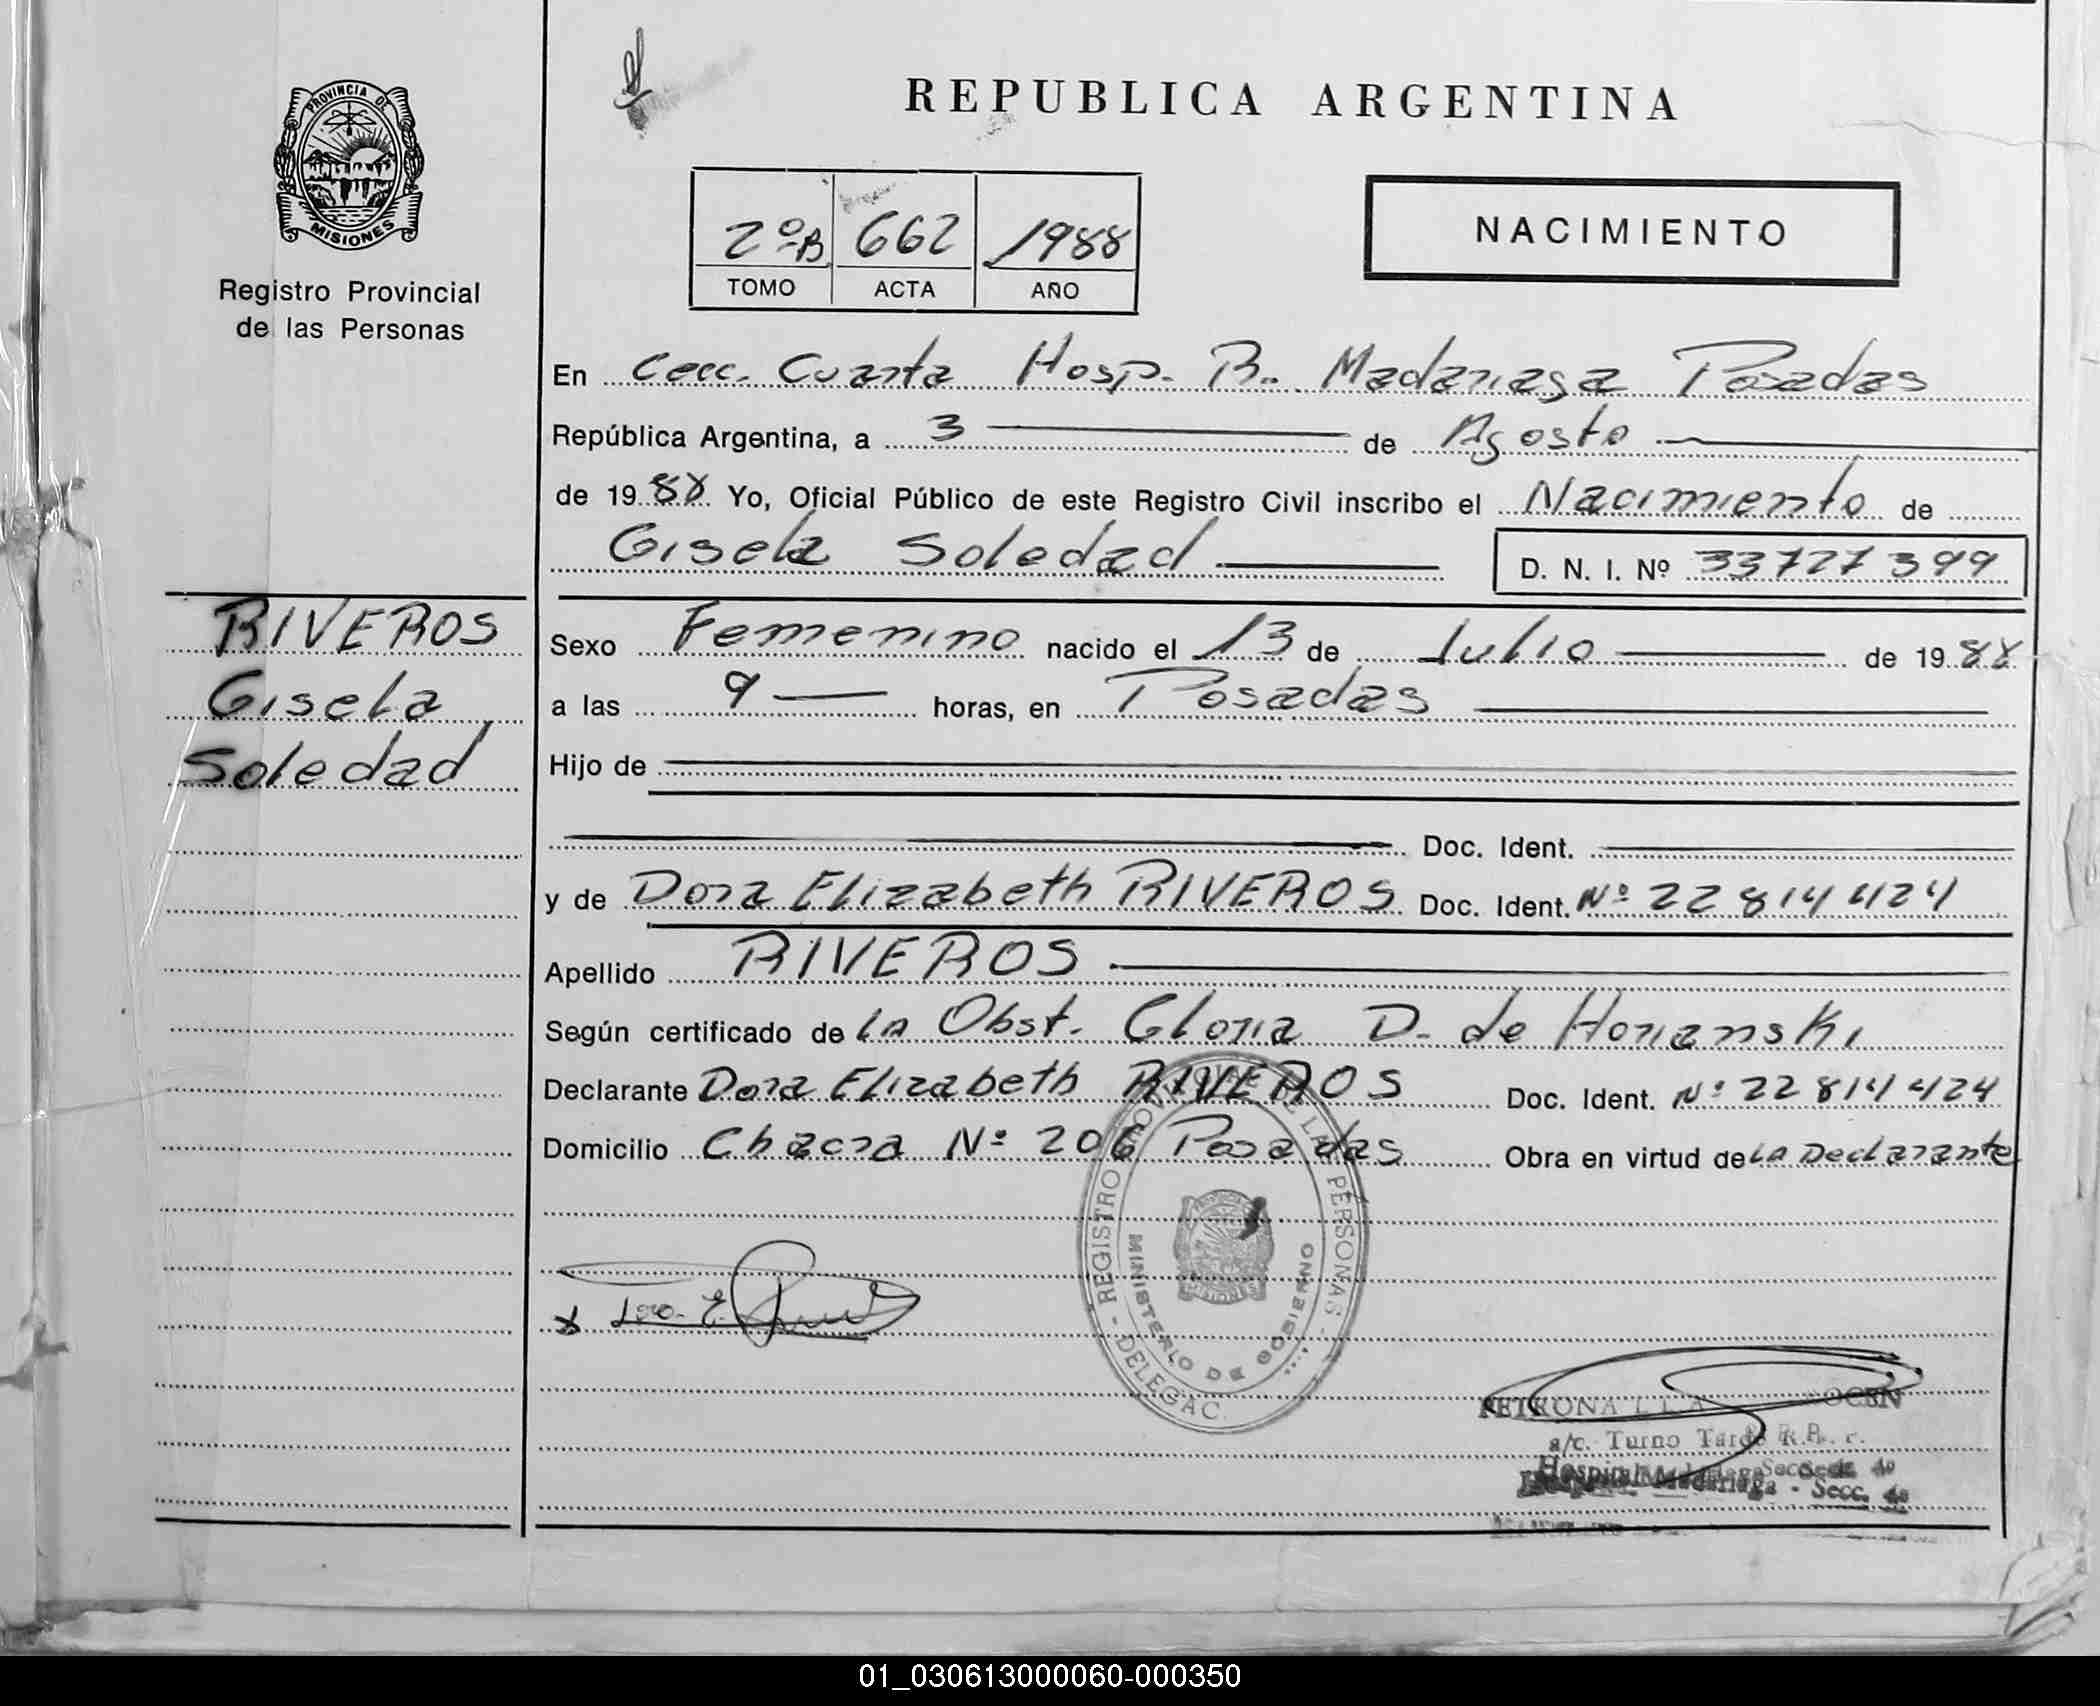 PROVINCIA DE
MISIONES
Registro Provincial
de las Personas
REPUBLICA ARGENTINA
2º B 662 1988
TOMO ACTA AÑO
NACIMIENTO
En Cecc. Cuarta Hosp. R. Madariaga Posadas
República Argentina, a 3 de Agosto
de 1988 Yo, Oficial Público de este Registro Civil inscribo el Nacimiento de
Gisela Soledad D. N. I. Nº 33727399
RIVEROS
Gisela
Soledad
Sexo Femenino nacido el 13 de Julio de 1988
a las 9 horas, en Posadas
Hijo de
Doc. Ident.
y de Dora Elizabeth RIVEROS Doc. Ident. Nº 22814424
Apellido RIVEROS
Según certificado de la Obst. Gloria D. de Horianski
Declarante Dora Elizabeth RIVEROS Doc. Ident. Nº 22814424
Domicilio Chacra Nº 206 Posadas Obra en virtud de la Declarante
REGISTRO PERSONAS - DELEGAC.
MINISTERIO DE GOBIERNO
MISIONES
PETRONA
a/c. Turno Tarde
Hospital Madariaga - Secc. 4a
01_030613000060-000350